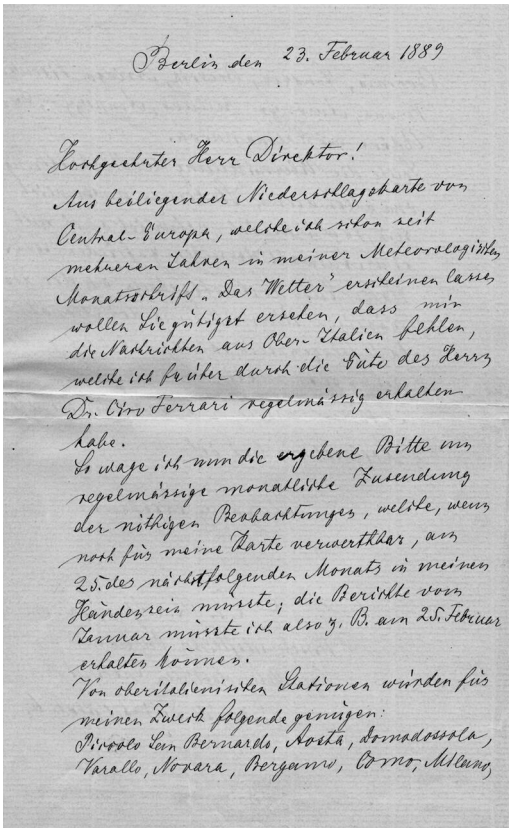 Berlin den 23. Februar 1889
Hochgeehrter Herr Direktor!
Aus beiliegender Niederschlagskarte von
Central-Europa, welche ich schon seit
mehreren Jahren in meiner Meteorologischen
Monatsschrift „Das Wetter" erscheinen lasse,
wollen Sie gütigst ersehen, dass mir
die Nachrichten aus Ober-Italien fehlen,
welche ich früher durch die Güte des Herrn
Dr. Ciro Ferrari regelmässig erhalten
habe.
So wage ich nun die ergebene Bitte um
regelmässige monatliche Zusendung
der nöthigen Beobachtungen, welche, wenn
noch für meine Karte verwerthbar, am
25. des nächstfolgenden Monats in meinen
Händen sein müsste; die Berichte vom
Januar müsste ich also z. B. am 25. Februar
erhalten können.
Von oberitalienischen Stationen würden für
meinen Zweck folgende genügen:
Piccolo San Bernardo, Aosta, Domodossola,
Varallo, Novara, Bergamo, Como, Milano,